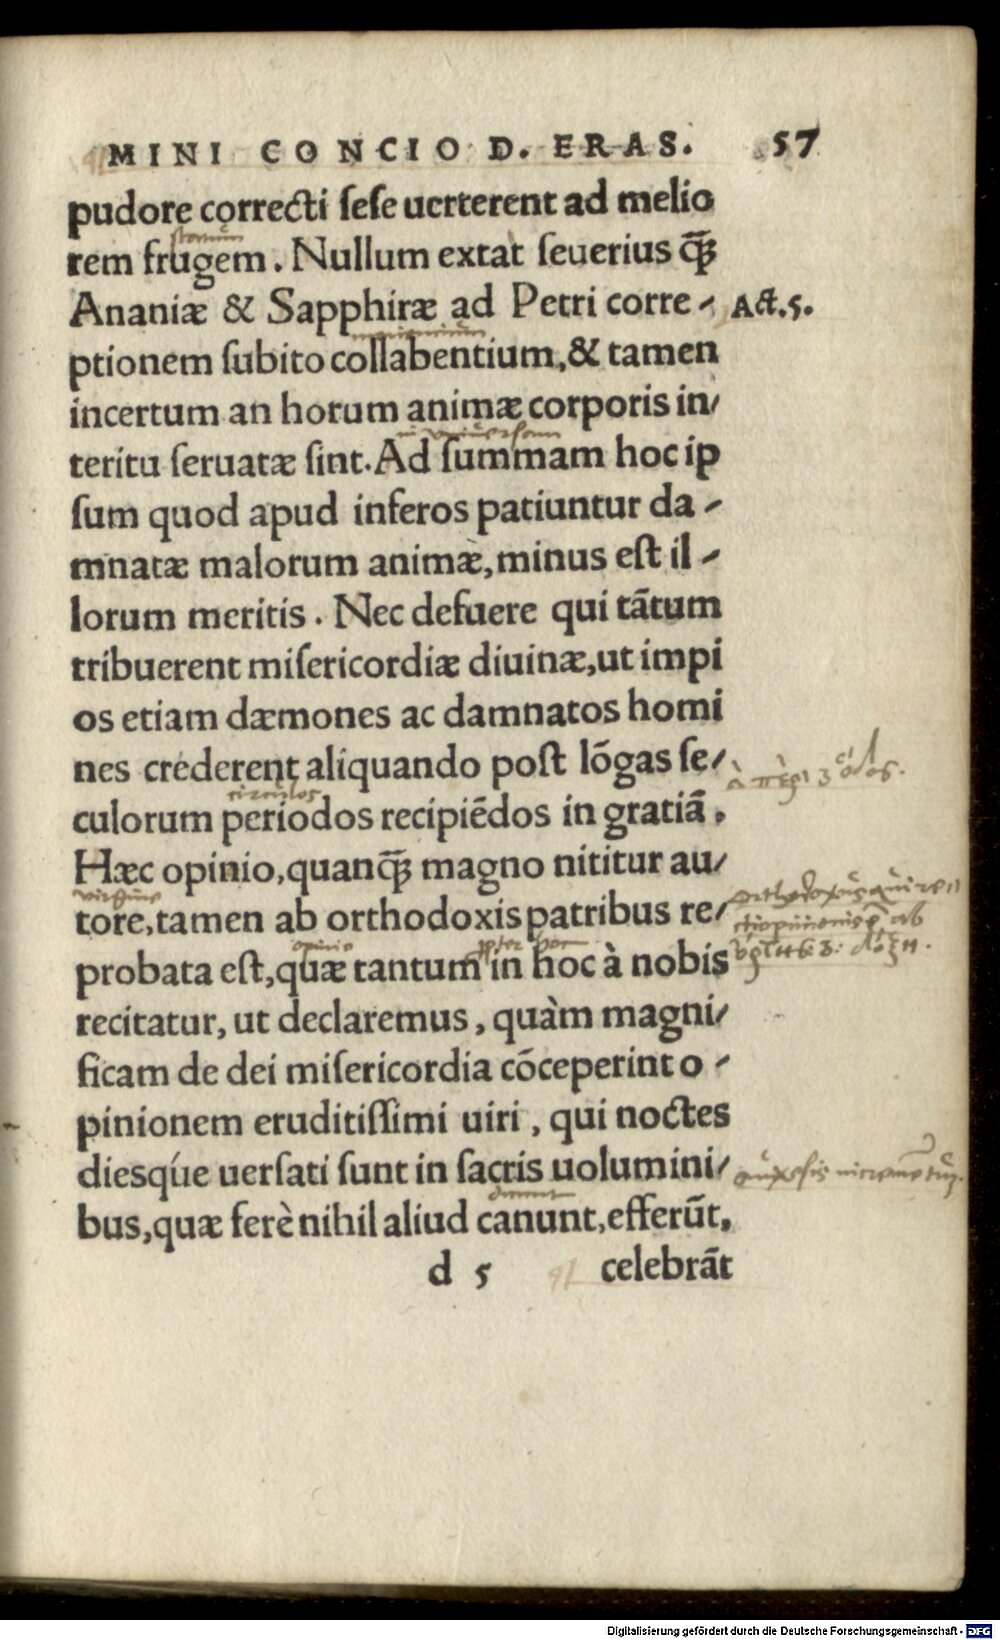 MINI CONCIO D. ERAS. 57
pudore correcti ſeſe uerterent ad melio
rem frugem. Nullum extat ſeuerius ꝙ̃ꝫ
Ananiæ & Sapphiræ ad Petri corre- Act.5.
ptionem ſubito collabentium,& tamen
incertum an horum animæ corporis in/
teritu ſeruatæ ſint. Ad ſummam hoc ip
ſum quod apud inferos patiuntur da-
mnatæ malorum animæ, minus eſt il-
lorum meritis. Nec defuere qui tãtum
tribuerent miſericordiæ diuinæ,ut impi
os etiam dæmones ac damnatos homi
nes crederent aliquando poſt lõgas ſe/
circulos
culorum periodos recipiẽdos in gratiã.
Hæc opinio,quanꝙ̃ꝫ magno nititur au/
tore,tamen ab orthodoxis patribus re/
opinio
probata eſt,quæ tantum in hoc à nobis
recitatur, ut declaremus, quàm magni/
ficam de dei miſericordia cõceperint o-
pinionem eruditiſſimi uiri, qui noctes
diesq́ue uerſati ſunt in ſacris uolumini/
bus,quæ ferè nihil aliud canunt,efferũt,
d 5 celebrãt
Digitalisierung gefördert durch die Deutsche Forschungsgemeinschaft - DFG